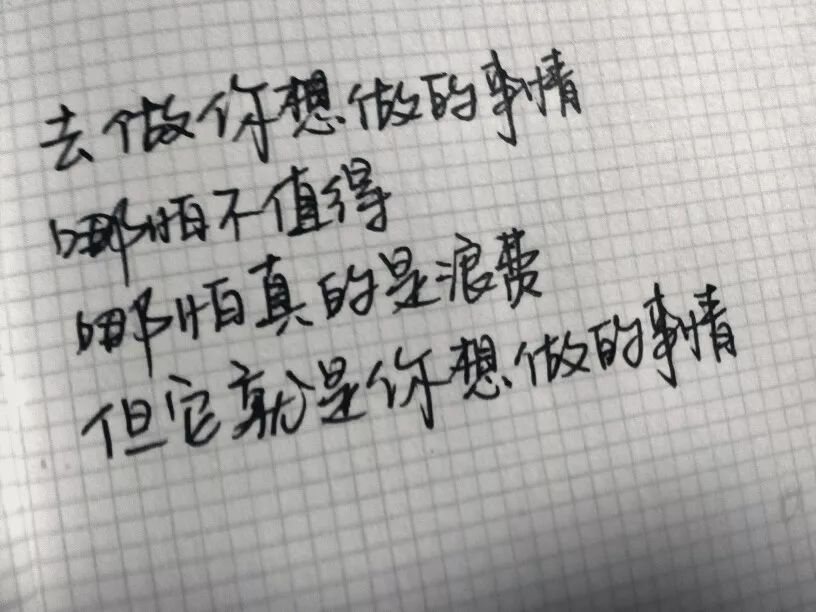 去做你想做的事情
哪怕不值得
哪怕真的是浪费
但它就是你想做的事情